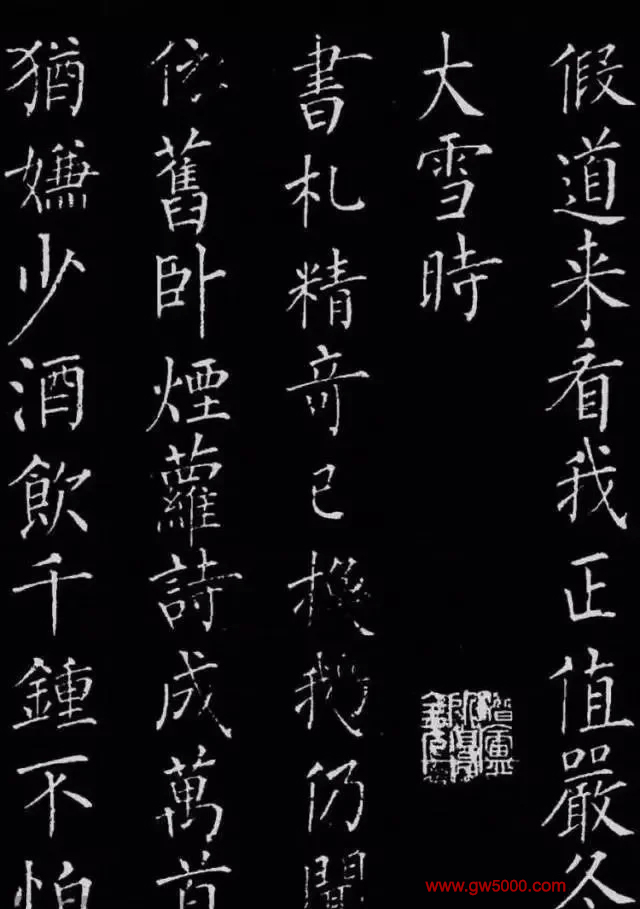 假道来看我正值嚴冬
大雪時
書札精奇已換鵝仍聞
依舊卧煙蘿詩成萬首
猶嫌少酒飲千鍾不怕
www.gw5000.com